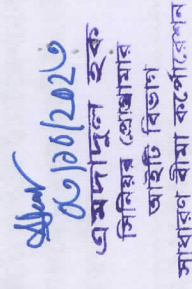 ০৩/১০/২০২৩
এমদাদুল হক
সিনিয়র প্রোগ্রামার
আইটি বিভাগ
সাধারণ বীমা কর্পোরেশন